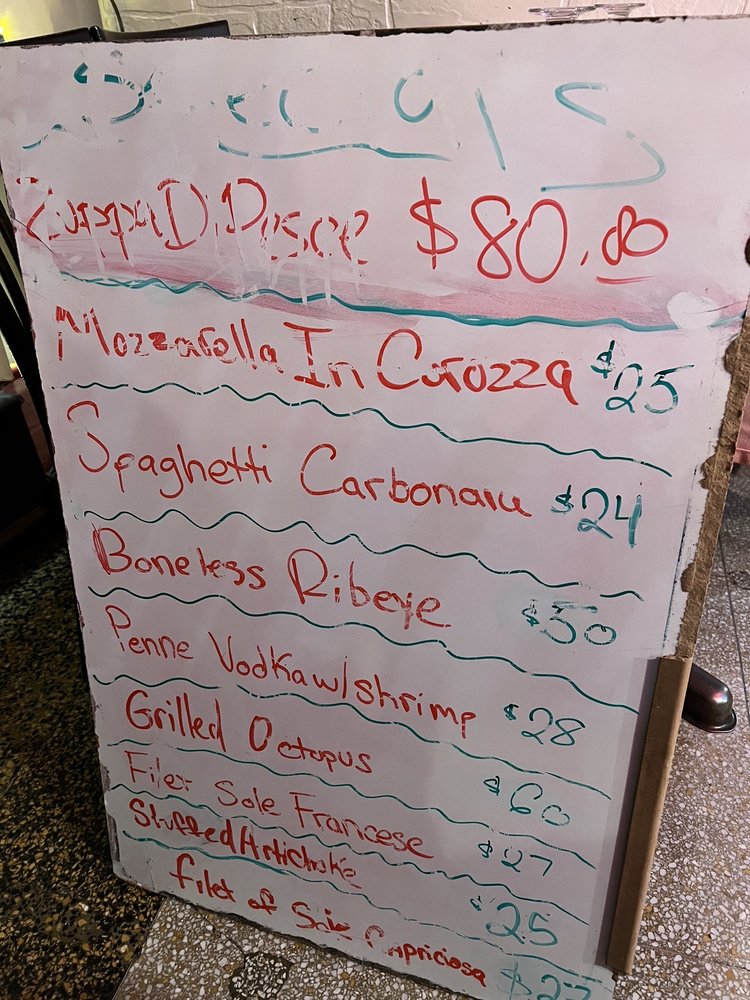 Zuppa Di Pesce $80.00
Mozzarella In Carozza $25
Spaghetti Carbonara $24
Boneless Ribeye $50
Penne Vodka w/ shrimp $28
Grilled Octopus $60
Filet Sole Francese $27
Stuffed Artichoke $25
filet of Sole Capricciosa $27